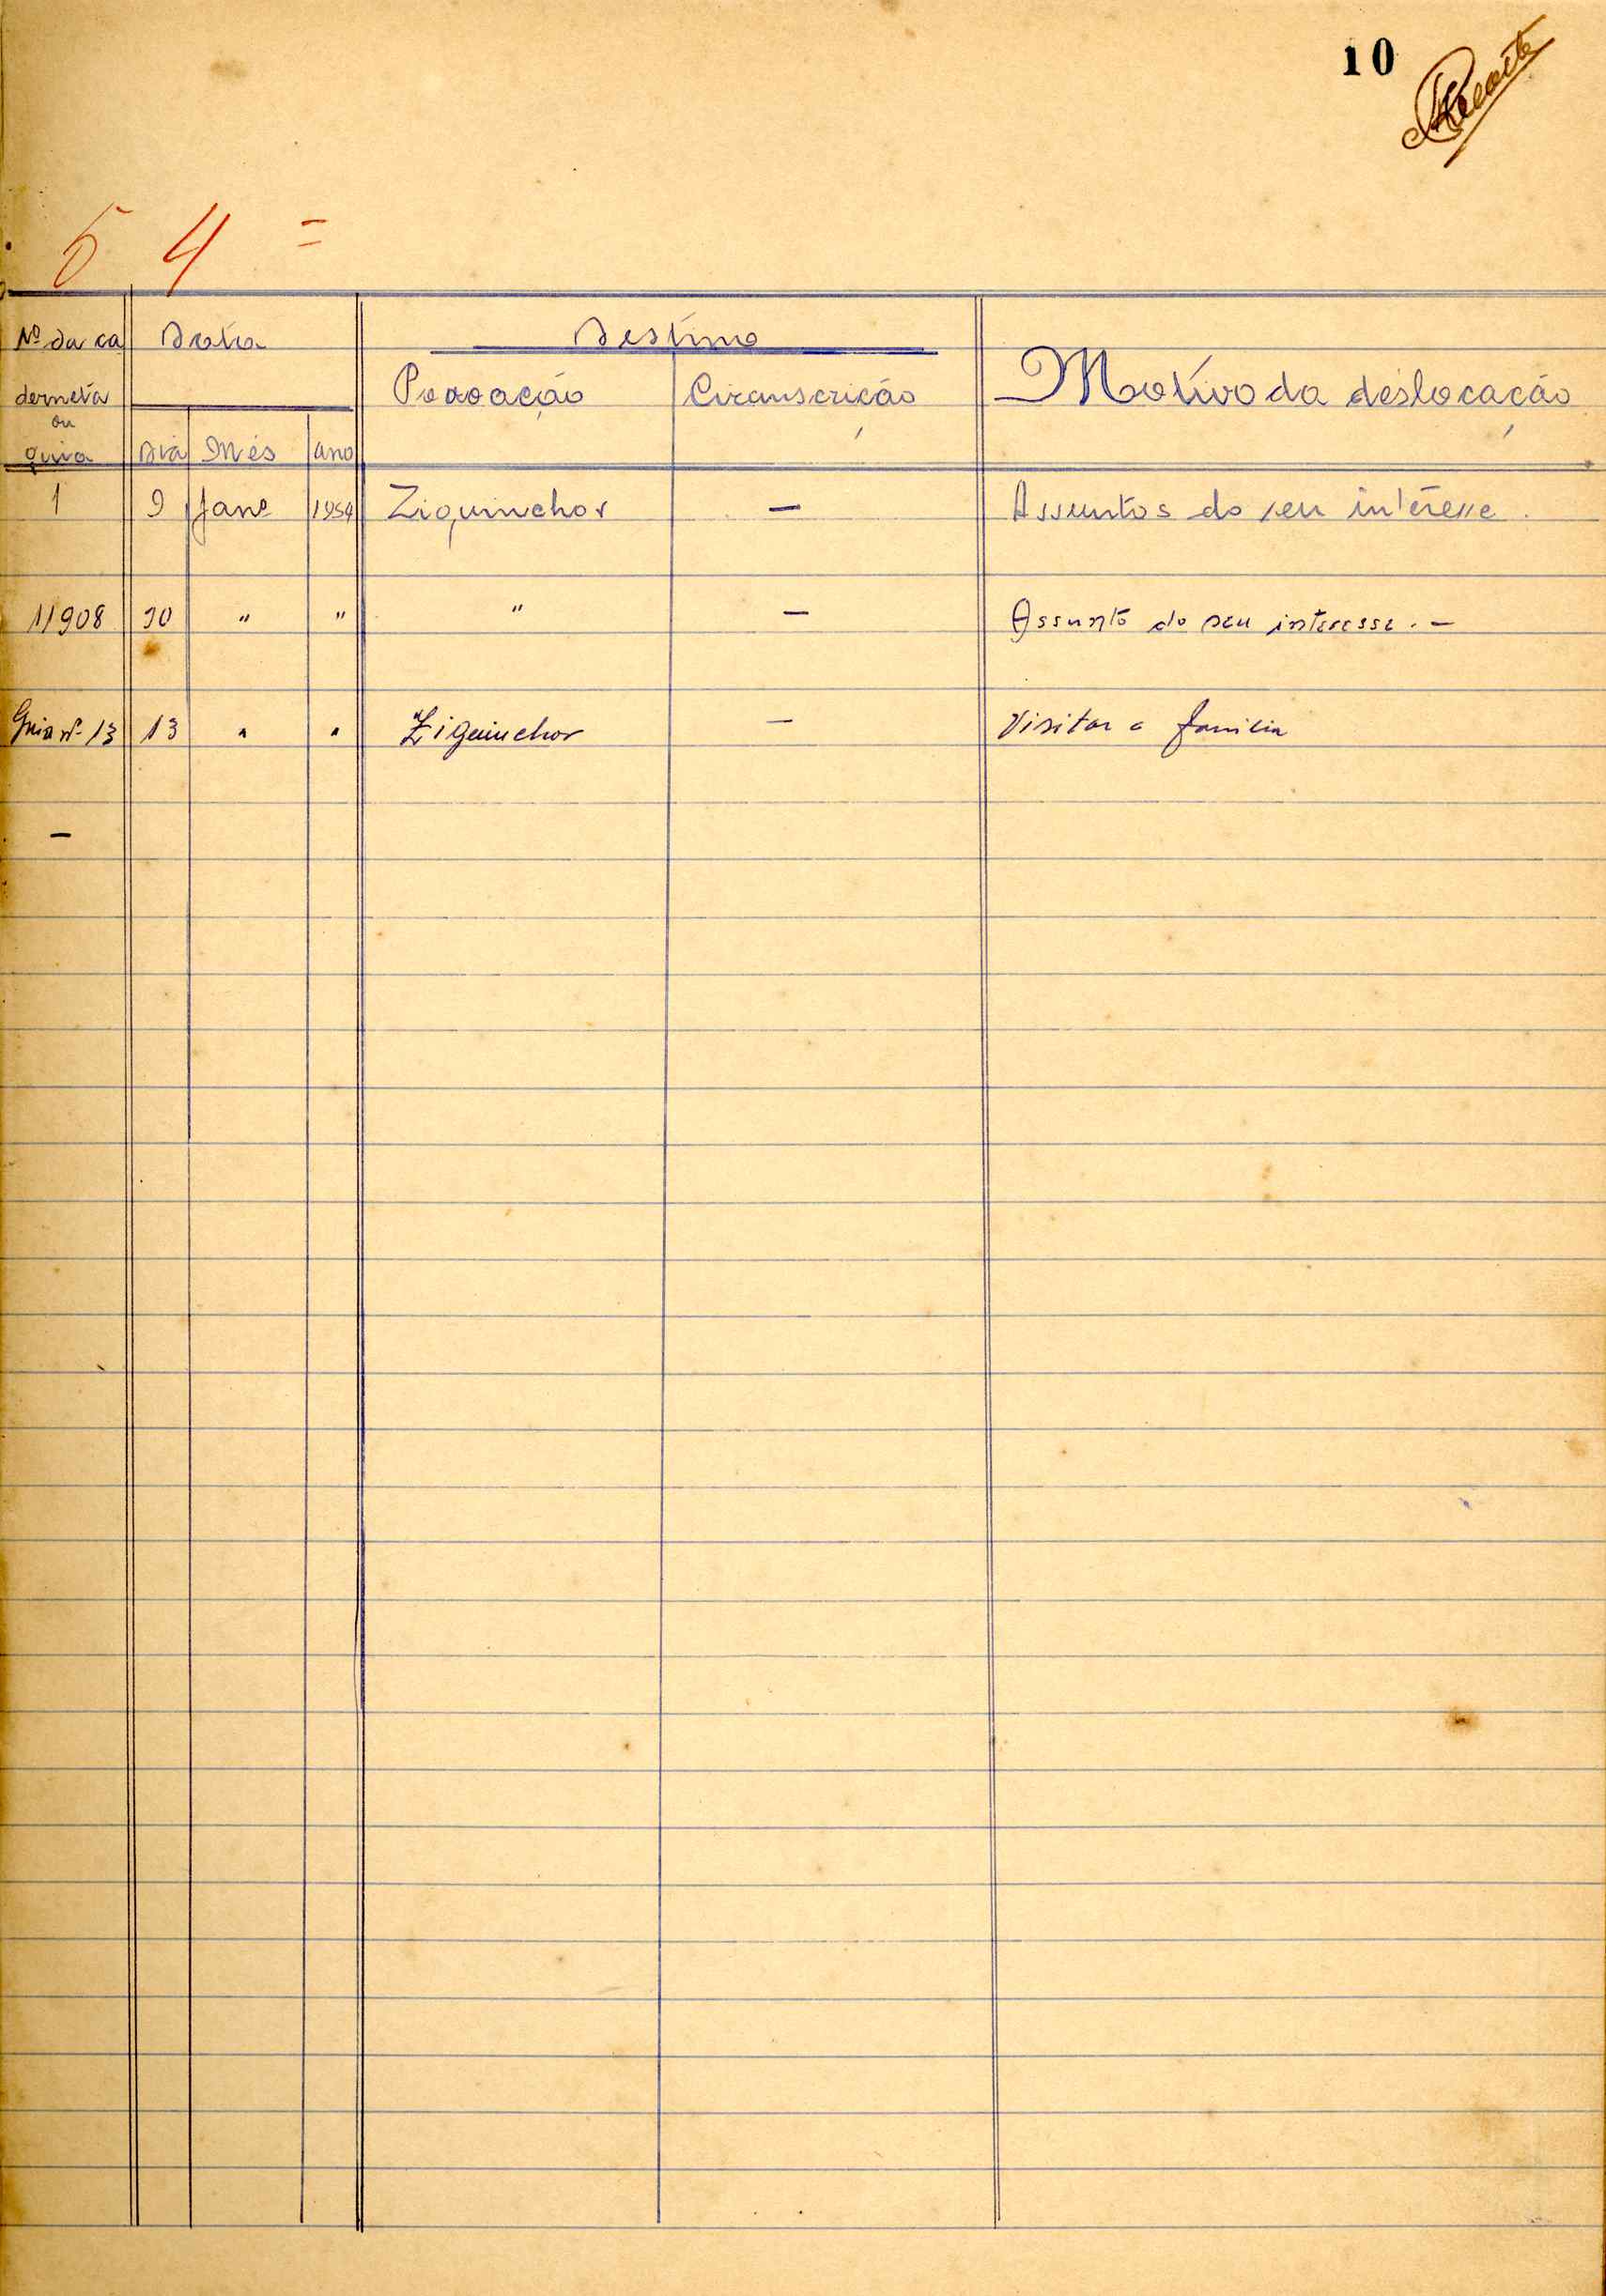 10
5 4 =
Nº da ca Data Destino
derneta Povoação Circunscrição Motivo da deslocação
ou
guia Dia Mês ano
1 9 Janº 1954 Ziguinchor — Assuntos do seu interêsse.
11908 30 " " " — Assunto do seu interesse. —
Guia nº 13 13 " " Ziguinchor — Visitar a familia
—